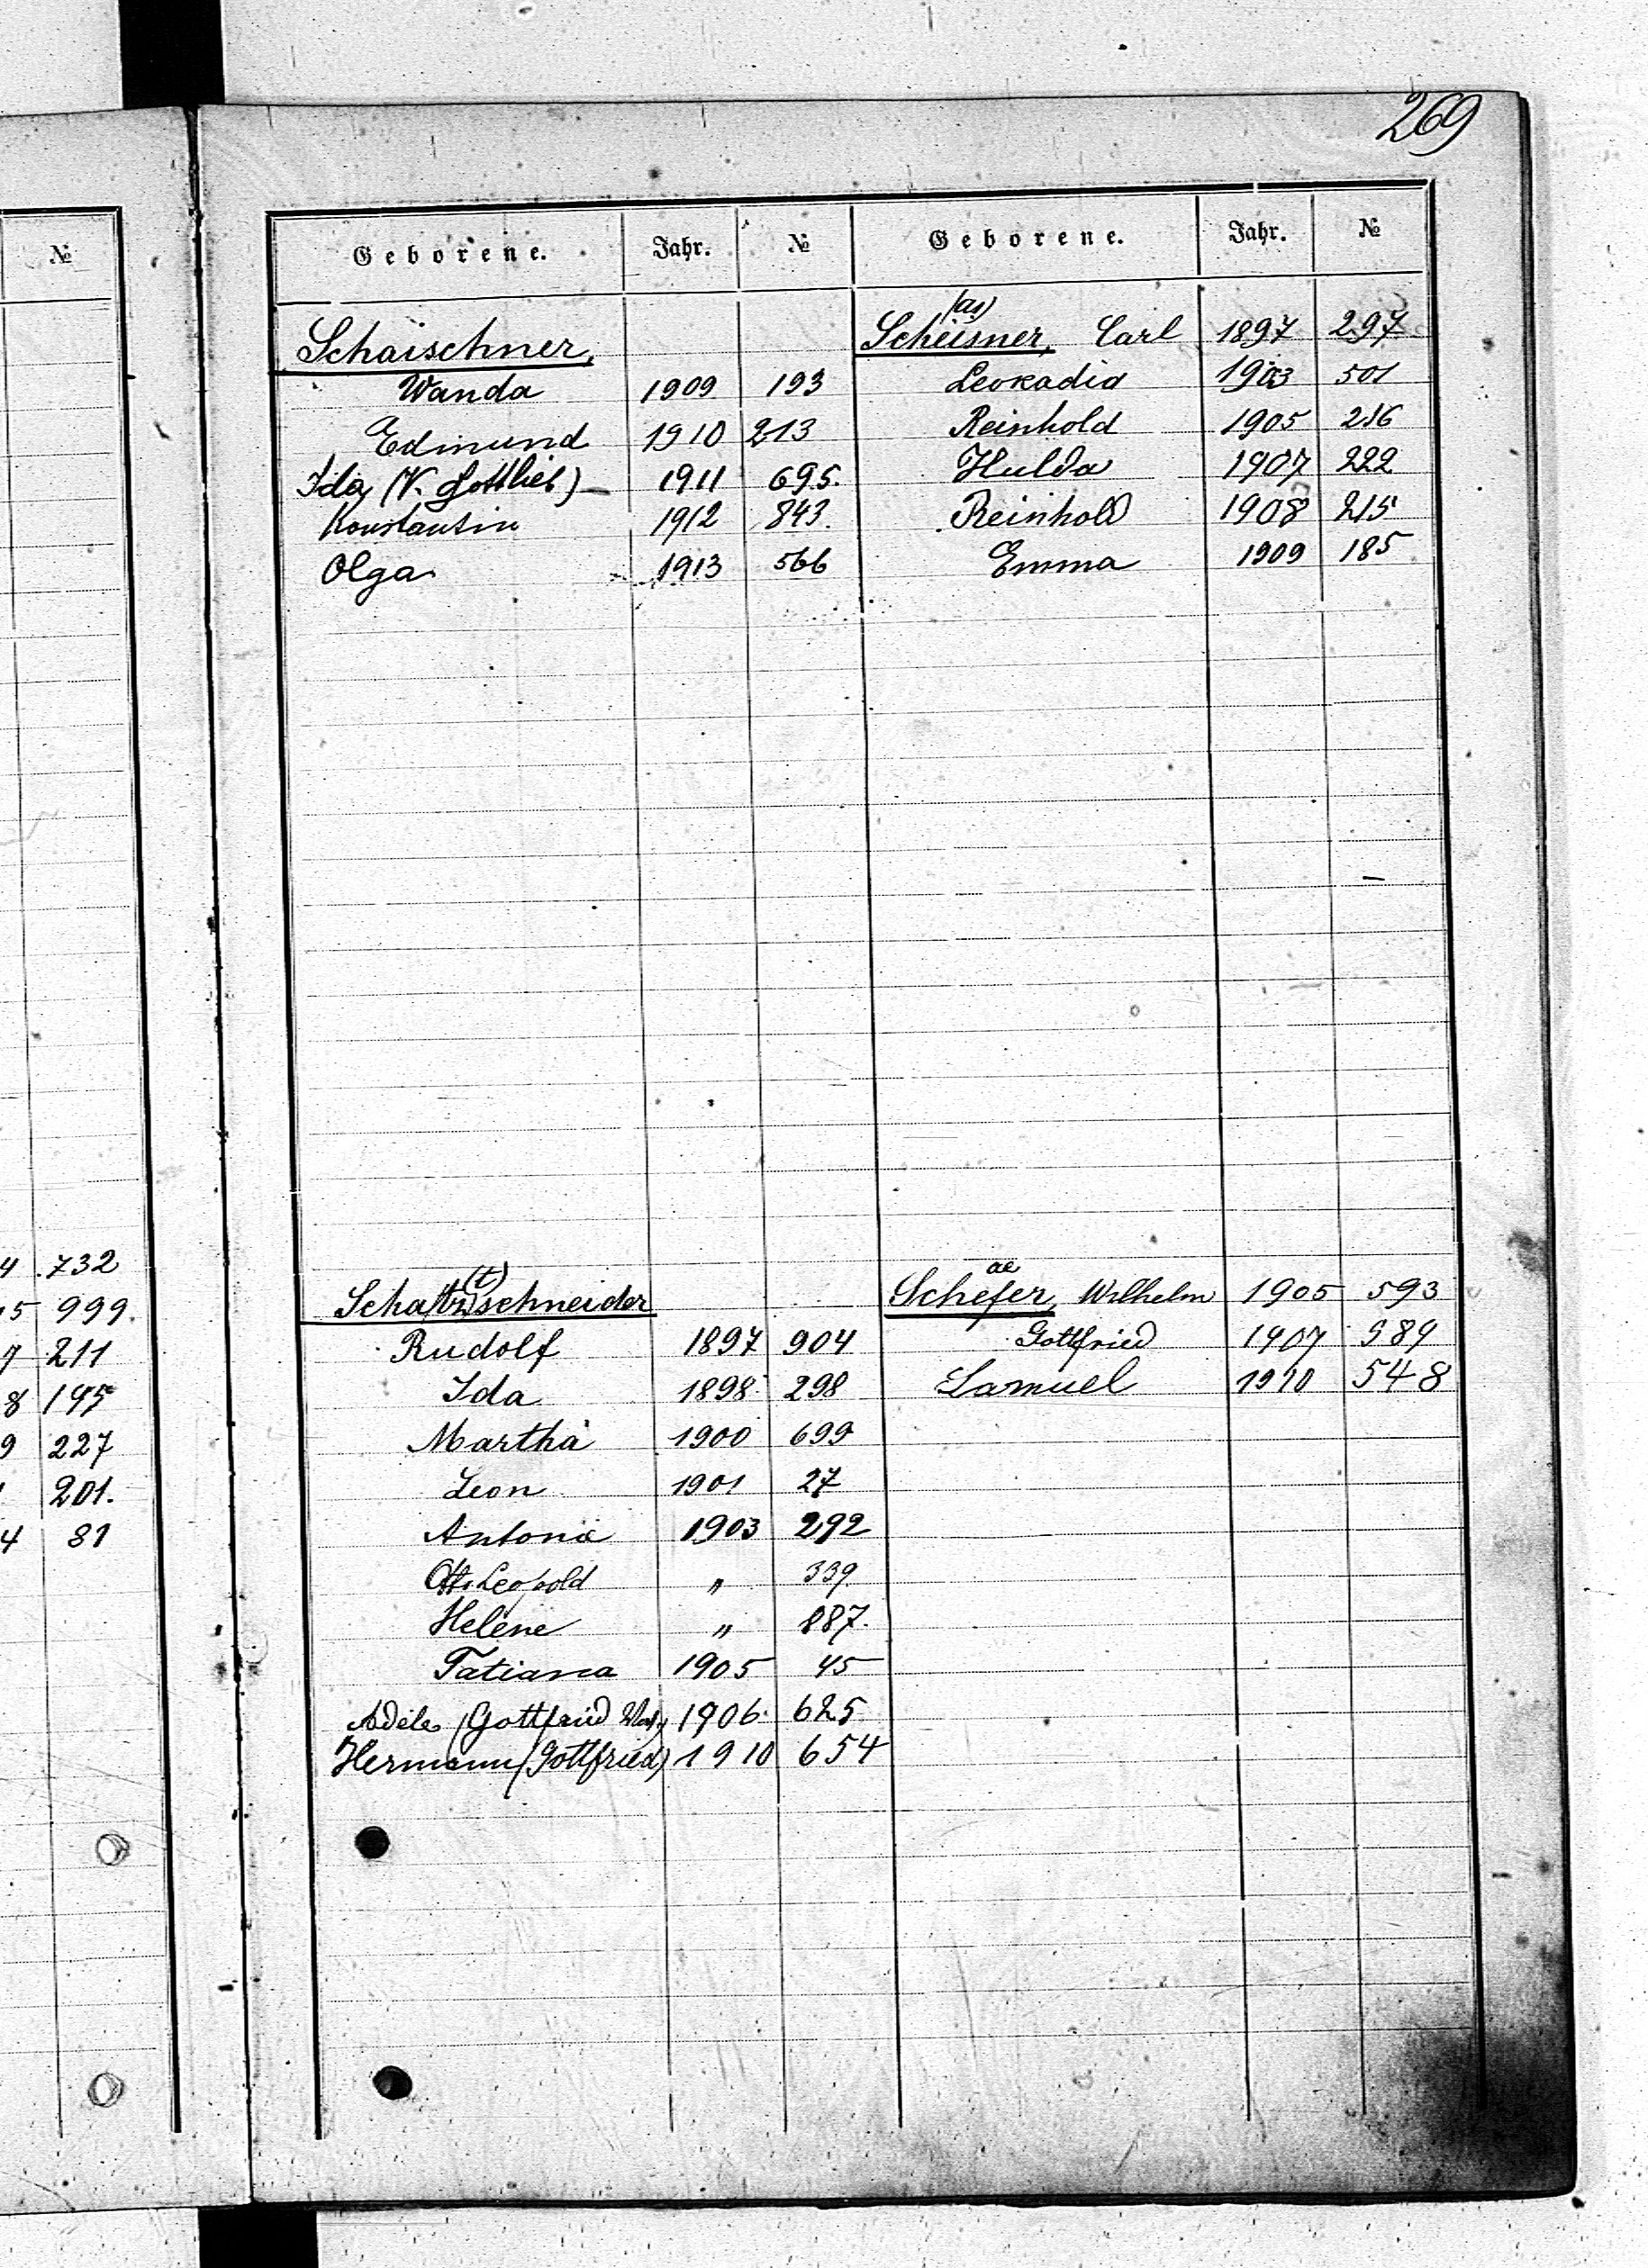 269
№
Geborene. Jahr. № Geborene. Jahr. №
Schaischner,
Wanda 1909 193
Edmund 1910 213
Ida (V. Gottlieb) — 1911 695.
Konstantin 1912 843.
Olga 1913 566
(ai)
Scheisner, Carl 1897 297
Leokadia 1903 501
Reinhold 1905 216
Hulda 1907 222
Reinhold 1908 215
Emma 1909 185
4 732
5 999.
7 211
8 195
9 227
201.
4 81
(t)
Schatzschneider
Rudolf 1897 904
Ida 1898 298
Martha 1900 699
Leon 1901 27
Antonie 1903 292
Otto Leopold " 339
Helene " 887.
Tatiana 1905 45
Adele (Gottfried 1906. 625
Hermann (Gottfried) 1910 654
ae
Schefer, Wilhelm 1905 593
Gottfried 1907 589
Samuel 1910 548